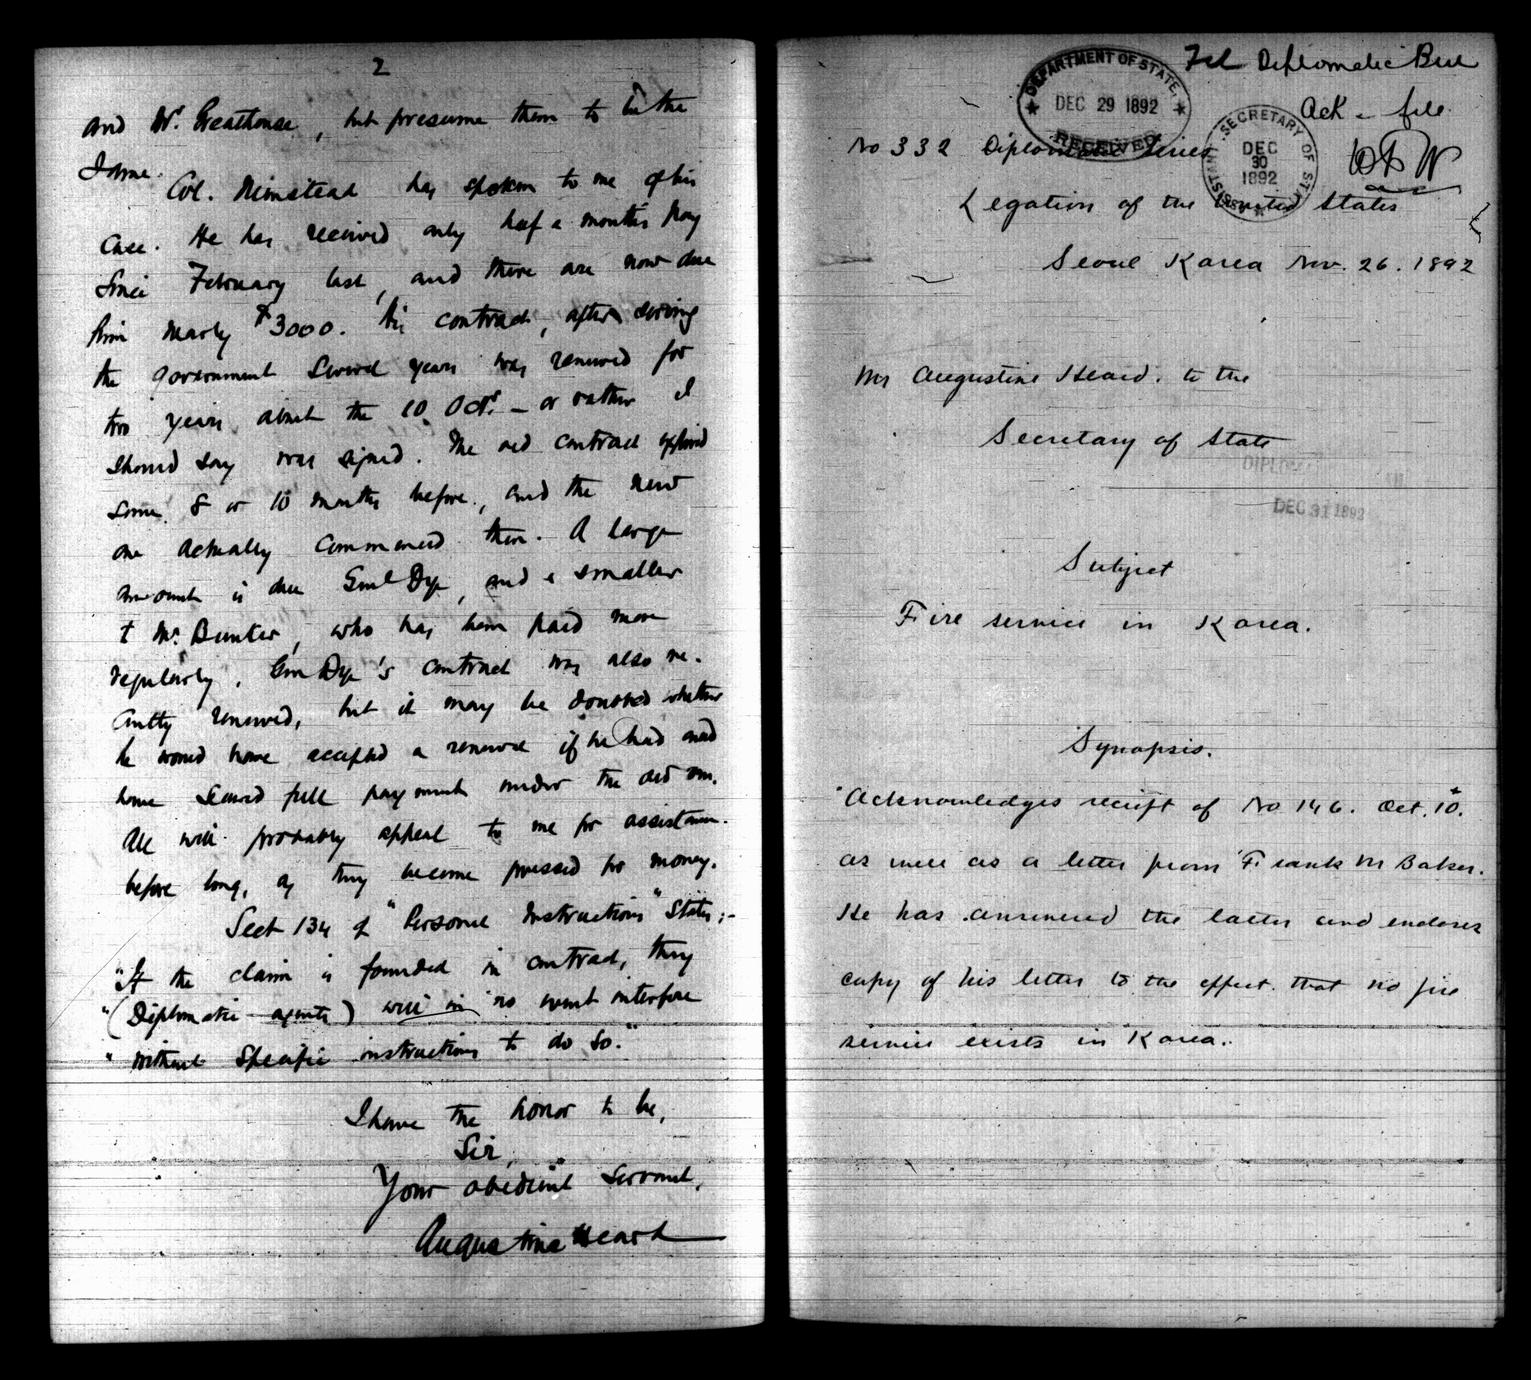 2
and Mr. Greathouse, but presume them to be the
same.
Col. Nienstead has spoken to me of his
case. He has received only half a month's pay
since February last, and there are now due
him nearly $3000. His contract, after serving
the government several years was renewed for
two years about the 10 Oct. — or rather I
should say was signed. The old contract expired
some 8 or 10 months before, and the new
one actually commenced then. A large
amount is due Genl Dye, and a smaller
t Mr. Bunker, who has been paid more
regularly. Gen Dye's contract was also re-
cently renewed, but it may be doubted whether
he would have accepted a renewal if he had
have secured full payment under the old one.
All will probably appeal to me for assistance
before long, as they become pressed for money.
Sect 134 of "Personal Instructions" States:-
"If the claim is founded in contract, they
"(Diplomatic agents) will in no event interfere
" without specific instructions to do so."
I have the honor to be,
Sir,
Your obedient Servant,
Augustine Heard
DEPARTMENT OF STATE,
DEC 29 1892
RECEIVED
Diplomatic Bu
Ack - file
ASSISTANT SECRETARY OF STATE
DEC
30
1892
No 332 Diplomatic Series
Legation of the United States
Seoul Korea Nov. 26. 1892
Mr Augustine Heard. to the
Secretary of State
DEC 31 1892
Subject
Fire service in Korea.
Synopsis.
Acknowledges receipt of No 146. Oct. 10.
as well as a letter from Frank M Baker.
He has answered the latter and encloses
copy of his letter to the effect that no fire
service exists in Korea.